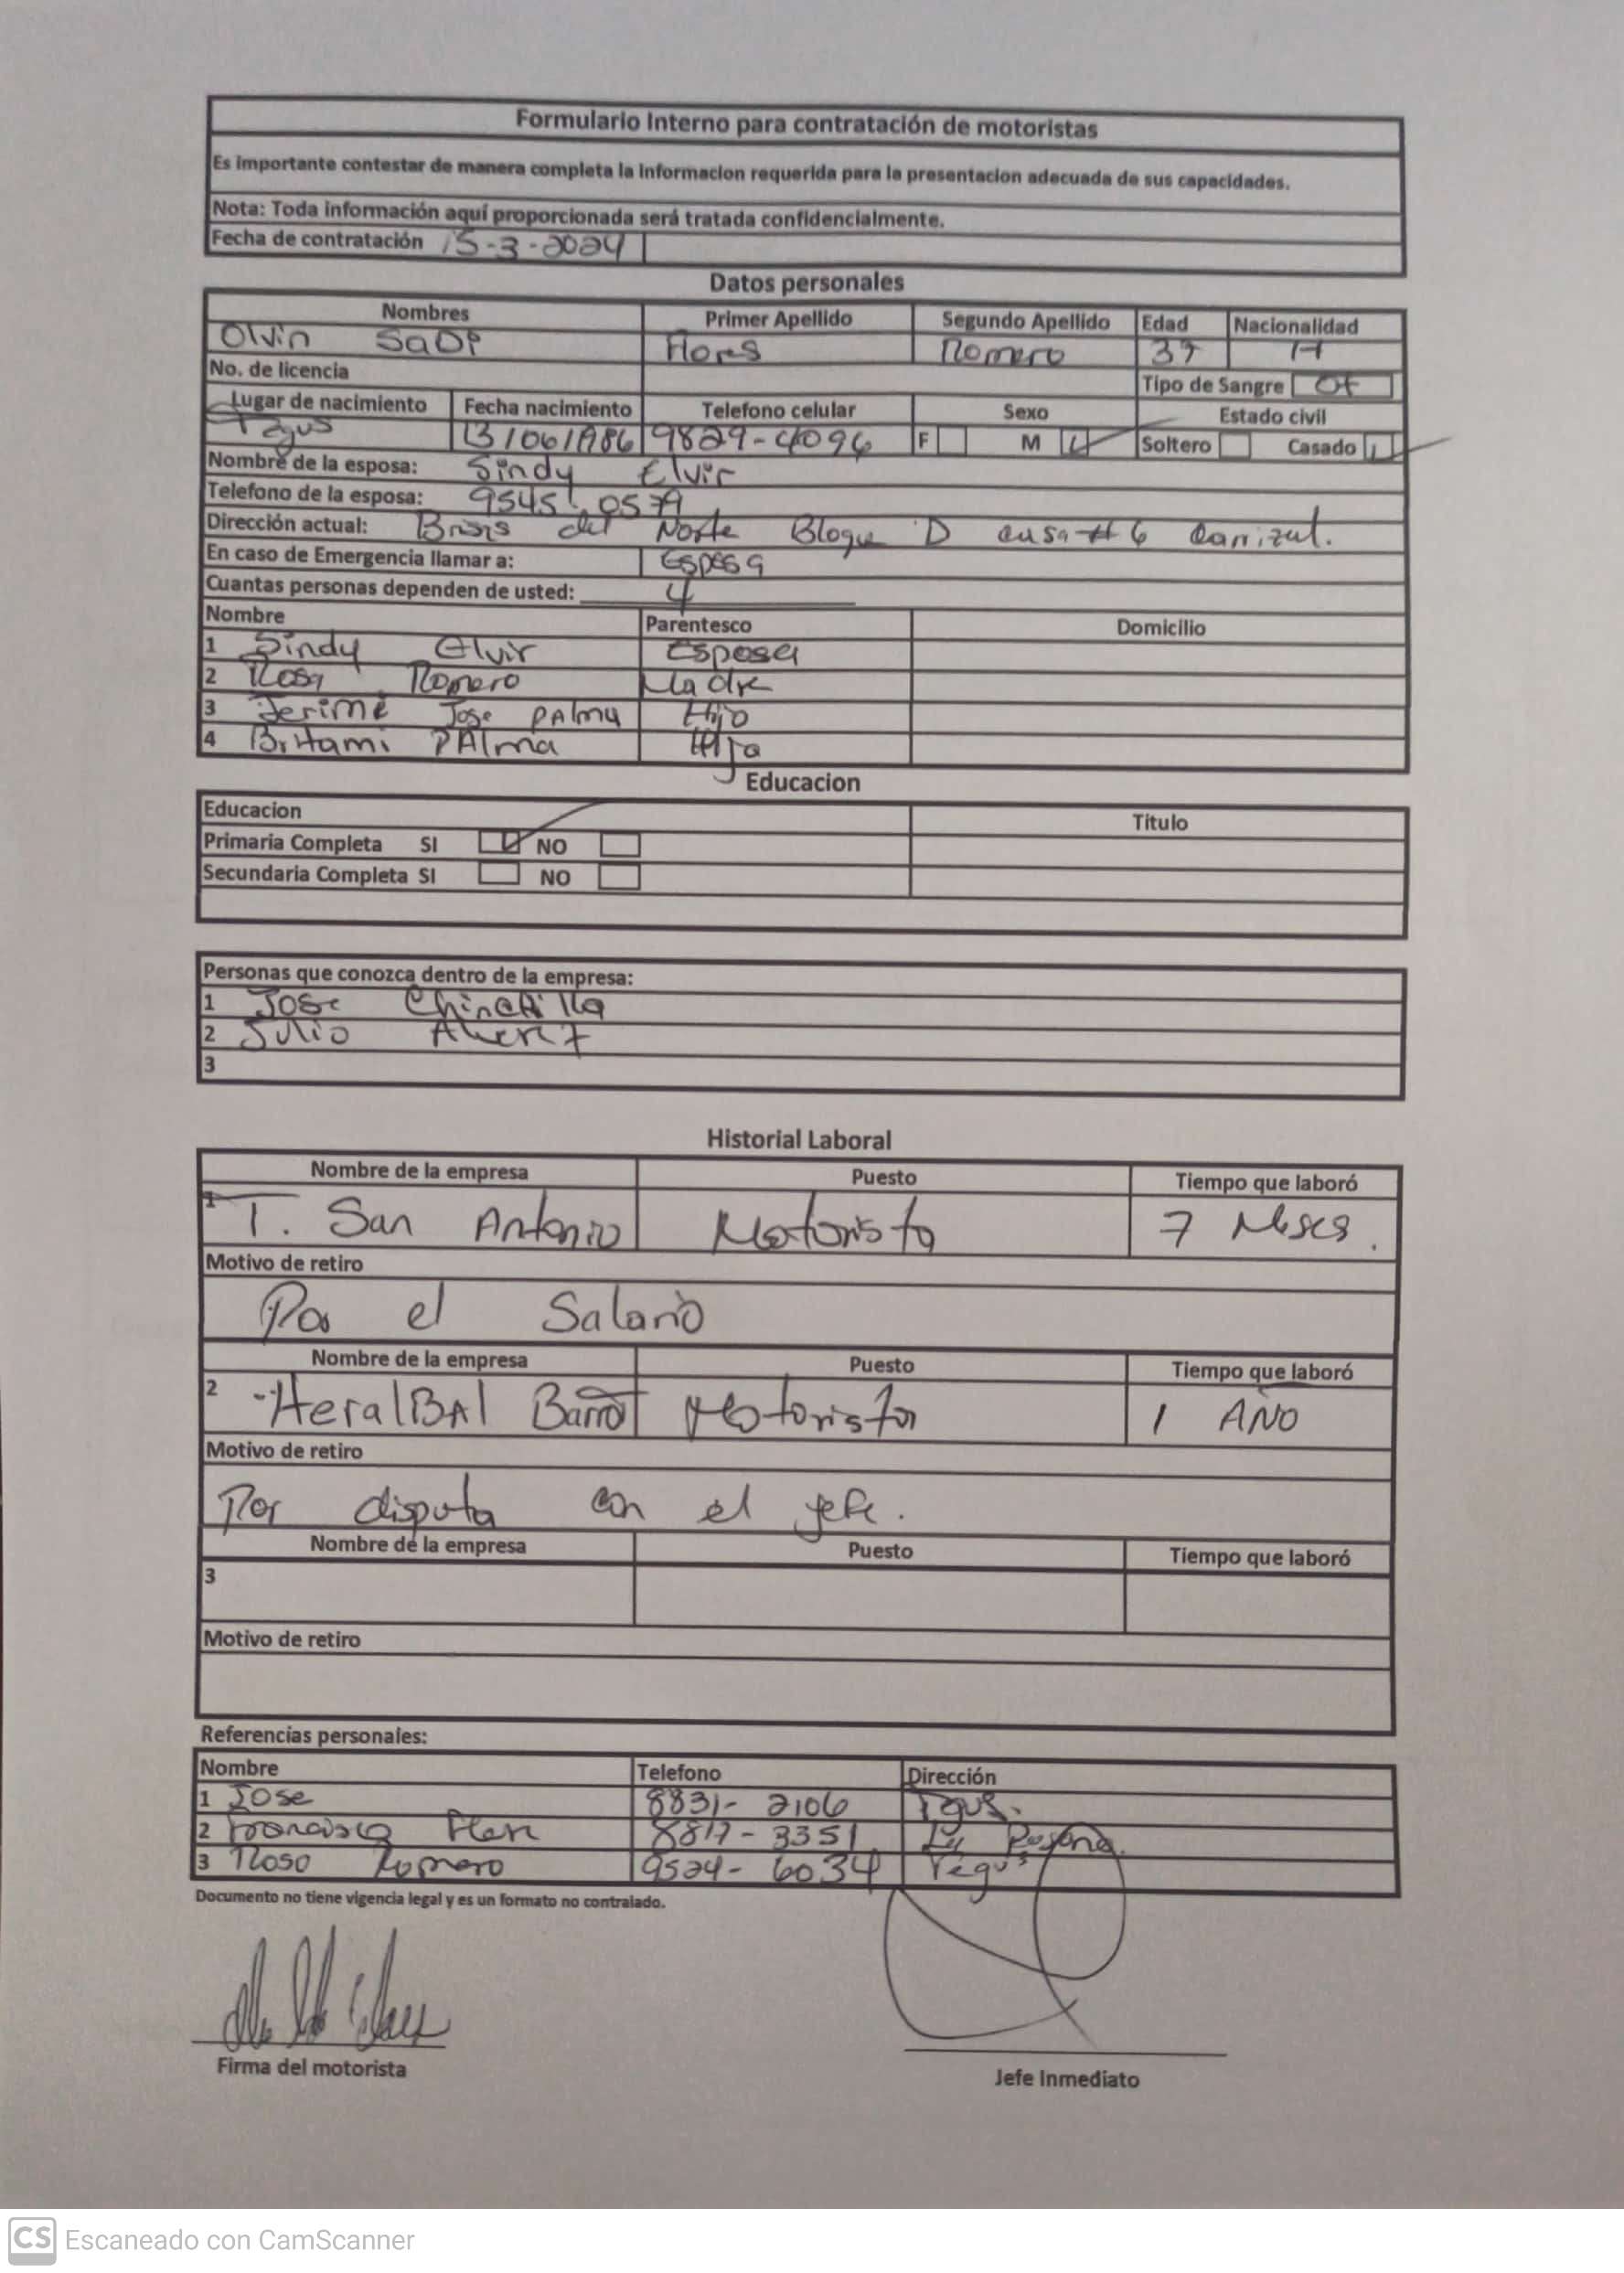 Formulario Interno para contratación de motoristas
Es importante contestar de manera completa la informacion requerida para la presentacion adecuada de sus capacidades.
Nota: Toda información aquí proporcionada será tratada confidencialmente.
Fecha de contratación 15-3-2024
Datos personales
Nombres Primer Apellido Segundo Apellido Edad Nacionalidad
Olvin SaDi Flores Romero 37 H
No. de licencia Tipo de Sangre O+
Lugar de nacimiento Fecha nacimiento Telefono celular Sexo Estado civil
Tegus 13/06/1986 9829-4096 F M Soltero Casado
Nombre de la esposa: Sindy Elvir
Telefono de la esposa: 9545-0579
Dirección actual: Brisas del Norte Bloque D casa # 6 Carrizal.
En caso de Emergencia llamar a: Esposa
Cuantas personas dependen de usted: 4
Nombre Parentesco Domicilio
1 Sindy Elvir Esposa
2 Rosa Romero Madre
3 Jerime Jose PAlma Hijo
4 Britami PAlma Hija
Educacion
Educacion Titulo
Primaria Completa SI NO
Secundaria Completa SI NO
Personas que conozca dentro de la empresa:
1 Jose Chinchilla
2 Julio
3
Historial Laboral
Nombre de la empresa Puesto Tiempo que laboró
1 T. San Antonio Motorista 7 Meses.
Motivo de retiro
Por el Salario
Nombre de la empresa Puesto Tiempo que laboró
2 Motorista 1 AÑO
Motivo de retiro
Por disputa con el jefe.
Nombre de la empresa Puesto Tiempo que laboró
3
Motivo de retiro
Referencias personales:
Nombre Telefono Dirección
1 Jose 8831-2106 Tgus.
2 Francisca 8817-3351 La
3 Rosa Romero 9524-6034 Tegus
Documento no tiene vigencia legal y es un formato no contralado.
Firma del motorista
Jefe Inmediato
CS Escaneado con CamScanner